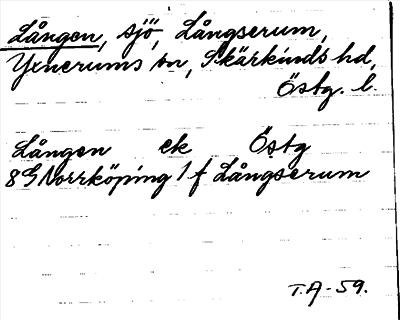 Lången, sjö, Långserum,
Yxnerums sn, Skärkinds hd,
Östg. l.
Lången ek Östg
8G Norrköping 1 f Långserum
T.A-59.